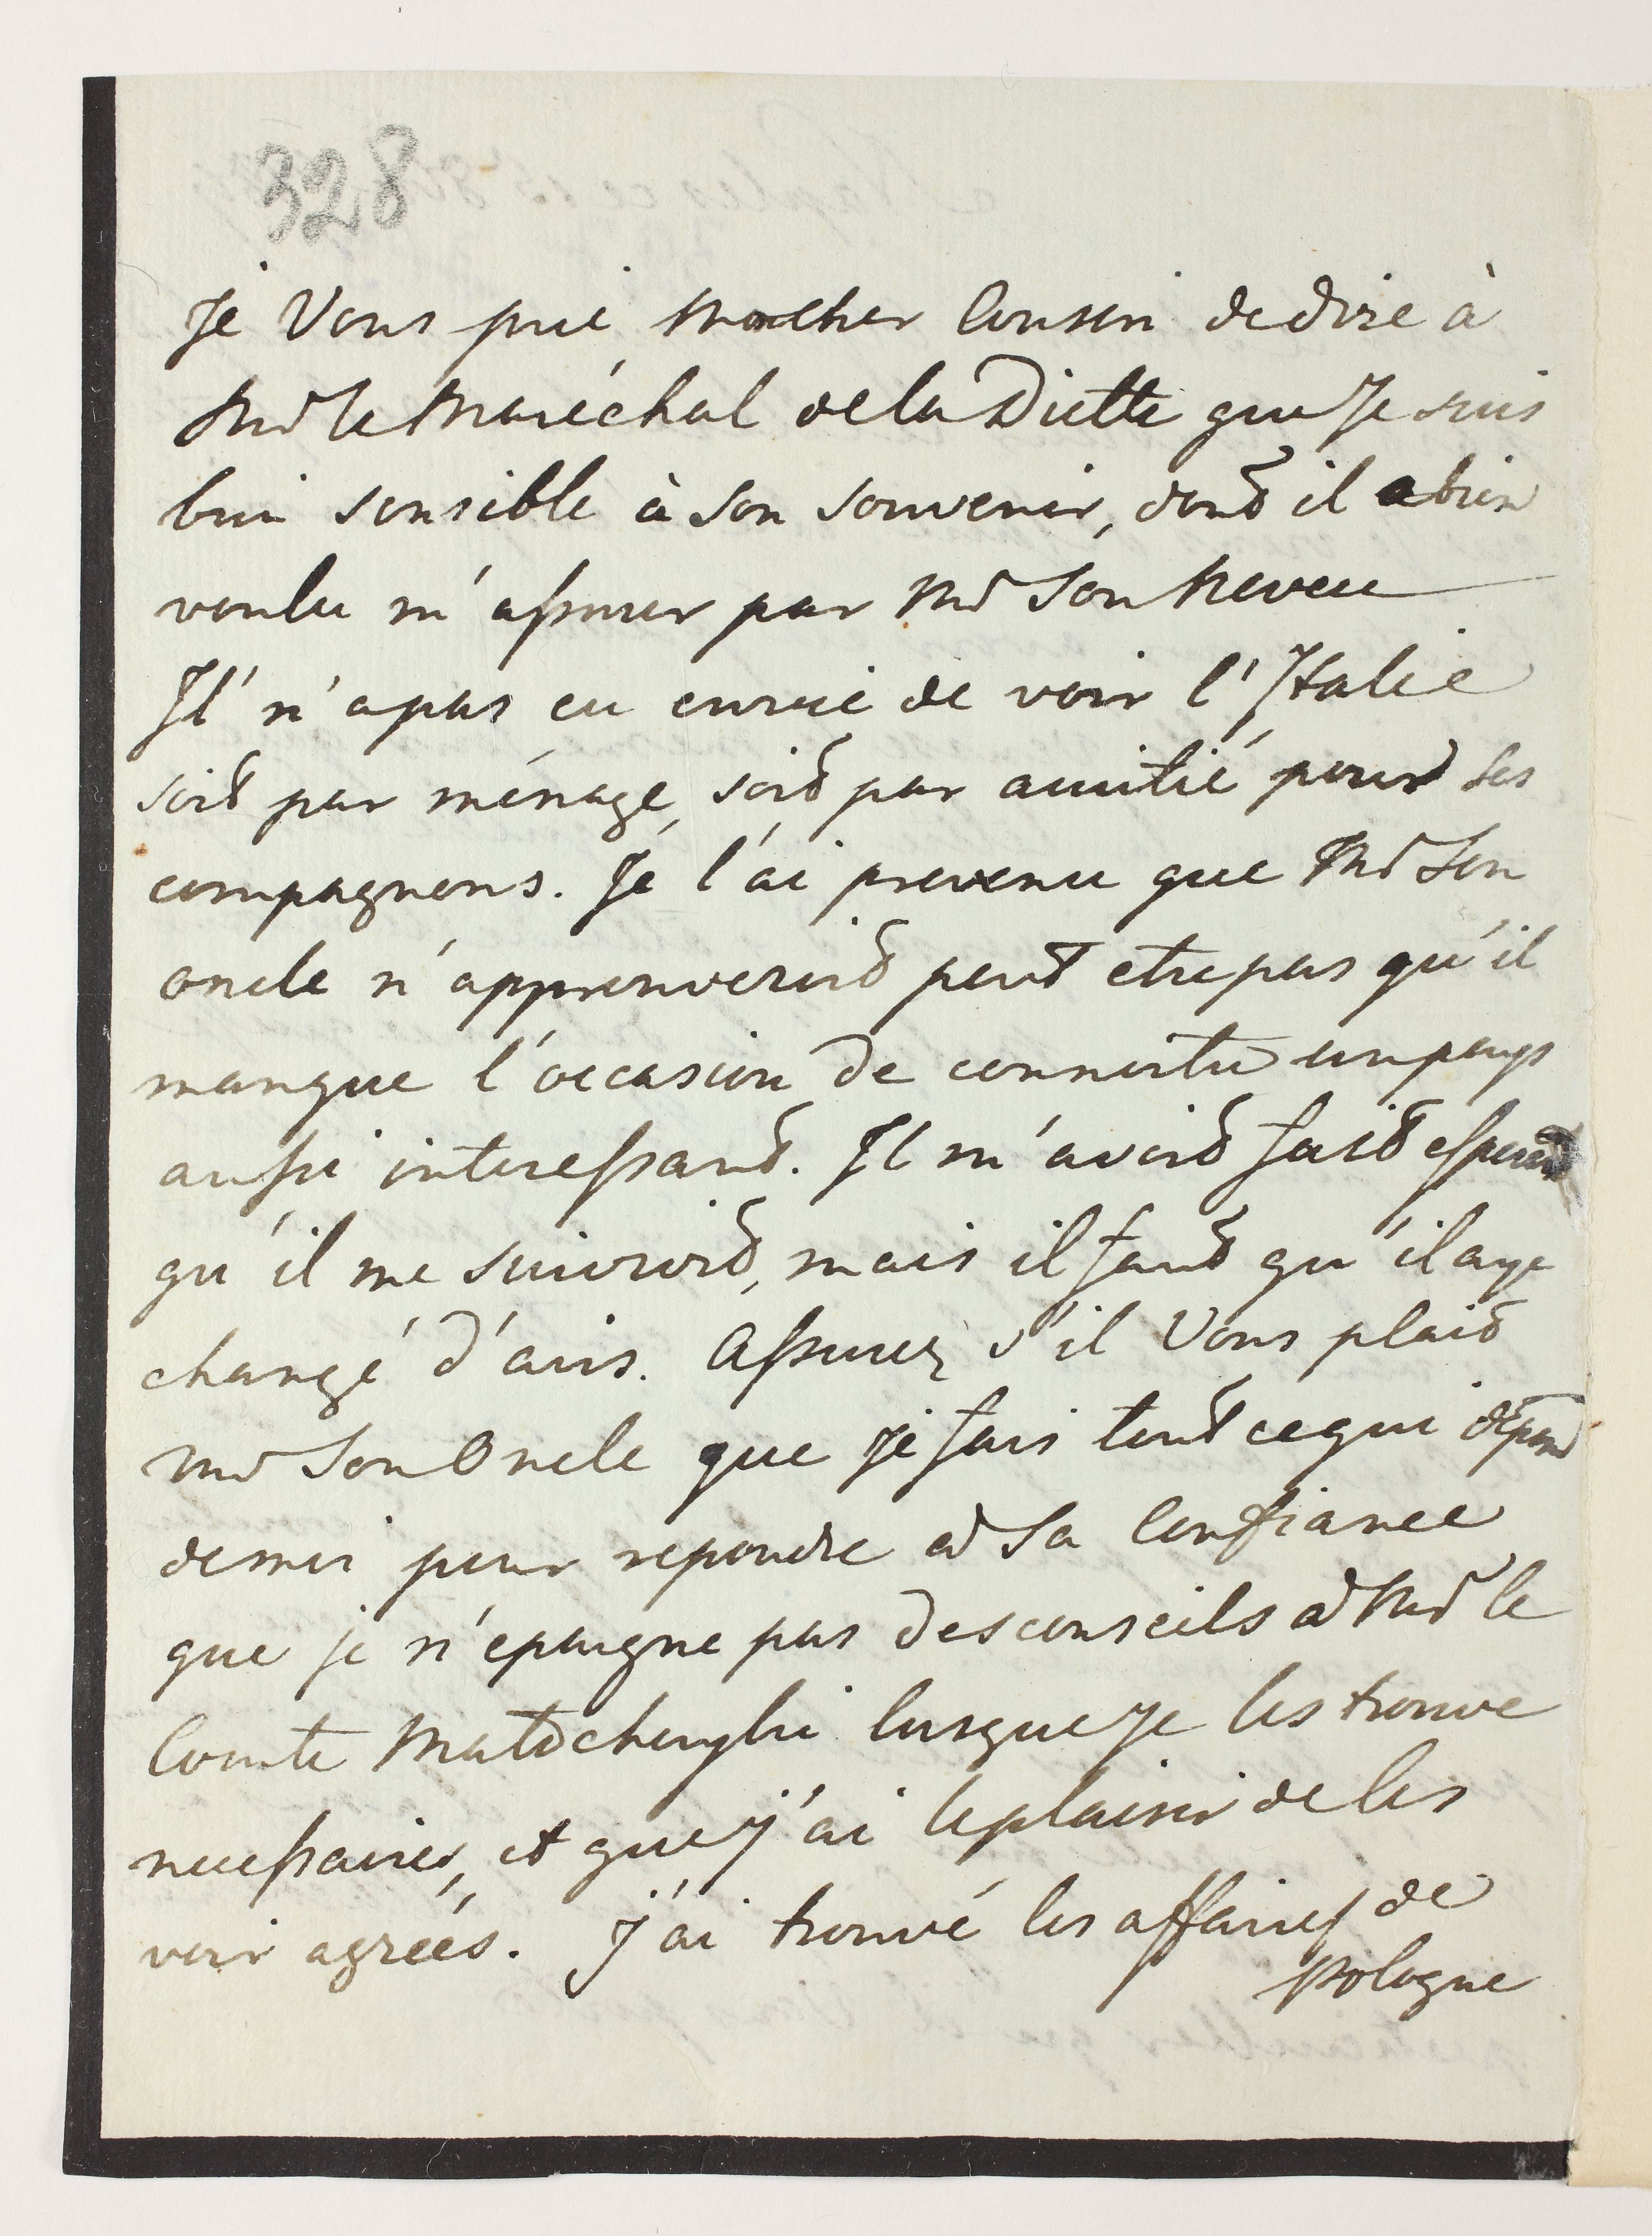 328
Je Vous prie mon cher Cousin de dire à
Mr le Maréchal de la Diette que Je suis
bien sensible à son souvenir, dont il a bien
voulu m'assurer par Mr Son Neveu
Il n'a pas eu envie de voir l'Italie
soit par ménage, soit par amitié pour ses
compagnons. Je l'ai prevenu que Mr Son
oncle n'approuveroit peut etre pas qu'il
manque l'occasion de connoitre un pays
aussi interessant. Il m'avoit fait esperer
qu'il me suivroit, mais il faut qu'il aye
changé d'avis. Assurez s'il Vous plait
Mr Son Oncle que Je fais tout ce qui dépend
de moi pour repondre à Sa Confiance
que je n'epargne pas des conseils à Mr le
Comte lorsque Je les trouve
necessaires, et que J'ai le plaisir de les
voir agréés. J'ai trouvé les affaires de
Pologne